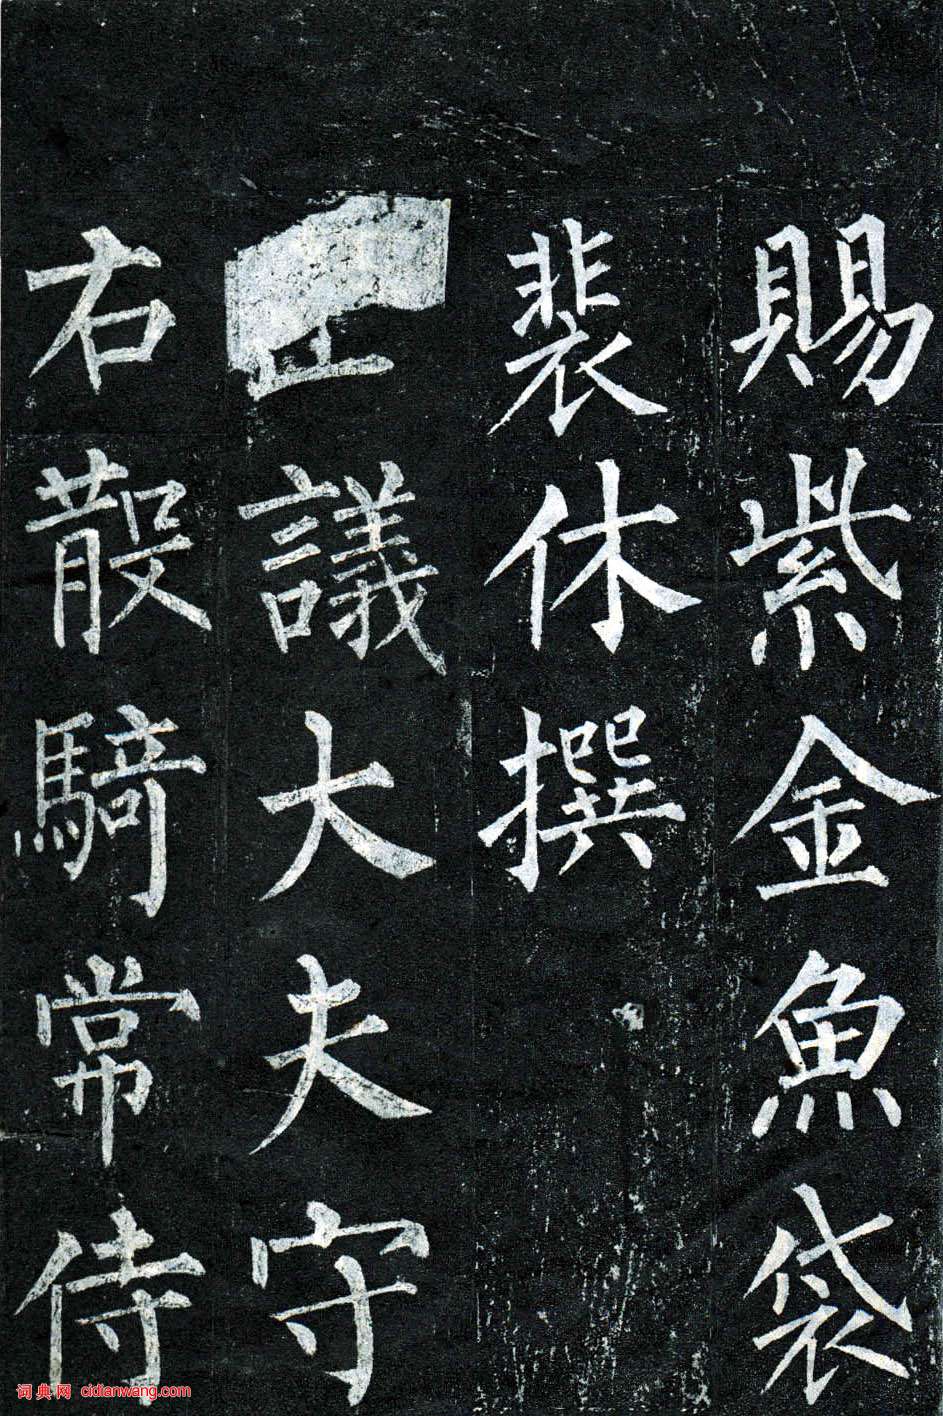 賜紫金魚袋
裴休撰
正議大夫守
右散騎常侍
词典网 cidianwang.com